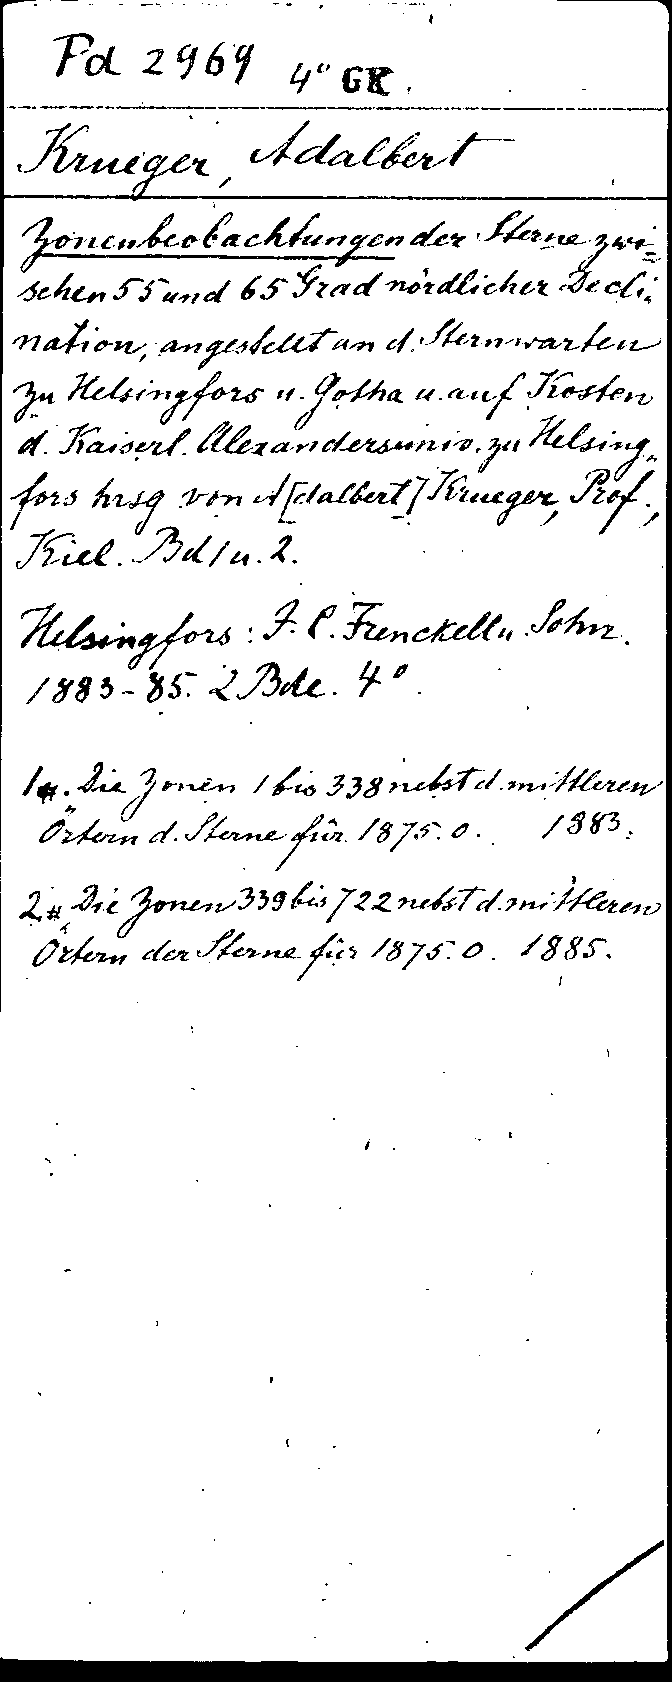 Pd 2969 4° GK.
Krueger, Adalbert
Zonenbeobachtungen der Sterne zwi-
schen 55 und 65 Grad nördlicher Decli-
nation, angestellt an d. Sternwarten
zu Helsingfors u. Gotha u. auf Kosten
d. Kaiserl. Alexandersuniv. zu Helsing-
fors hrsg von A[dalbert] Krueger, Prof.,
Kiel. Bd 1 u. 2.
Helsingfors: J. C. Frenckell u. Sohn.
1883-85. 2 Bde. 4°.
1. Die Zonen 1 bis 338 nebst d. mittleren
Örtern d. Sterne für 1875.0. 1883.
2. Die Zonen 339 bis 722 nebst d. mittleren
Örtern der Sterne für 1875.0. 1885.